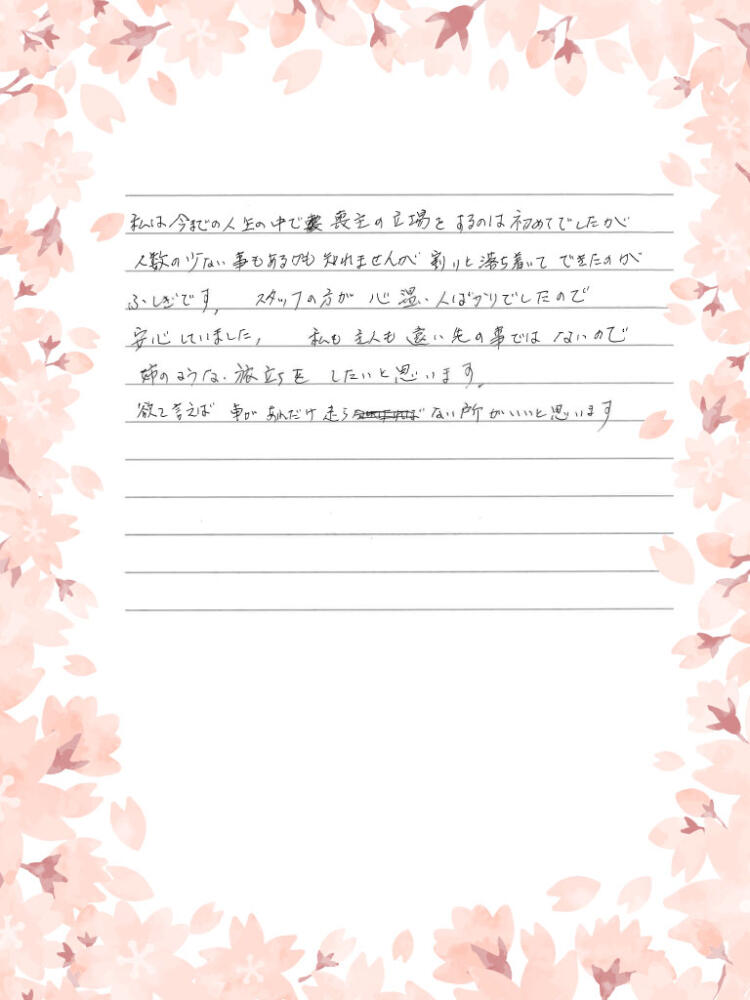 私は今までの人生の中で喪主の立場をするのは初めてでしたが
人数の少ない事もあるかも知れませんが割りと落ち着いてできたのが
ふしぎです。 スタッフの方が心温い人ばかりでしたので
安心していました。 私も主人も遠い先の事ではないので
姉のような旅立ちを したいと思います。
欲を言えば 車があれだけ走らない所がいいと思います